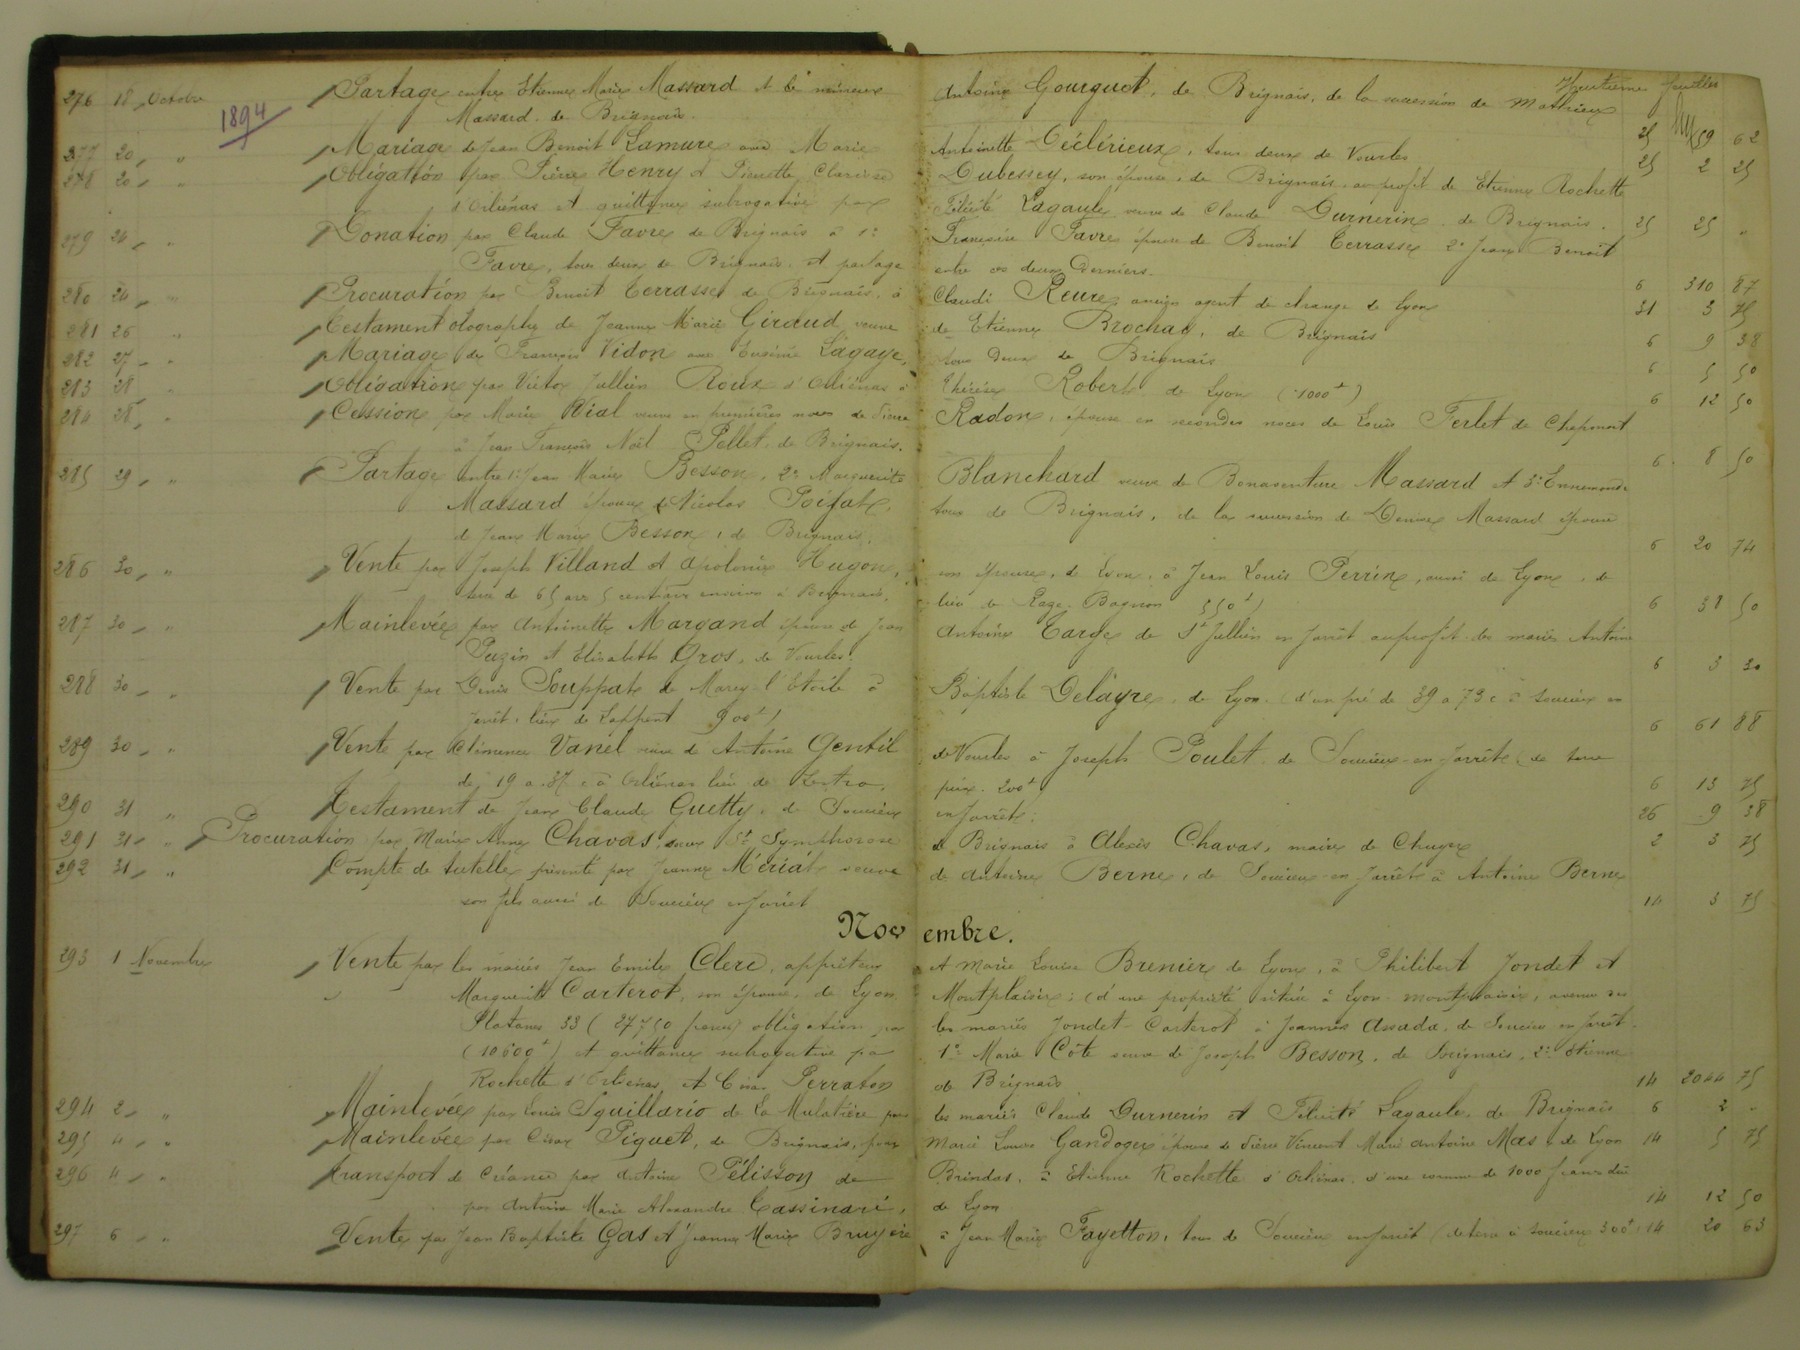 Huitième feuillet
276 18 Octobre Partage entre Etienne Marie Massard et le mineur Antoine Gourguet, de Brignais, de la succession de Mathieu
1894 Massard, de Brignais. 25 59 62
277 20 " " Mariage de Jean Benoit Lamure avec Marie Antoinette Déclérieux, tous deux de Vourles 25 2 25
278 20 " " Obligation par Pierre Henry et Pierrette Clarisse Dubessey, son épouse, de Brignais, au profit de Etienne Rochette
d'Orliénas et quittance subrogative par Félicité Lagaule veuve de Claude Durnerin de Brignais. 25 25 "
279 24 " " Donation par Claude Favre de Brignais à 1° Françoise Favre épouse de Benoit Terrasse 2° Jean Benoit
Favre, tous deux de Brignais, et partage entre ces deux derniers. 6 310 87
280 24 " " Procuration par Benoit Terrasse de Brignais, à Claude Reure ancien agent de change de Lyon 31 3 75
281 26 " Testament olographe de Jeanne Marie Giraud veuve de Etienne Brochay, de Brignais 6 9 38
282 27 " Mariage de François Vidon avec Eugénie Lagaye, tous deux de Brignais 6 5 50
283 28 " Obligation par Victor Jullien Roux d'Orliénas à Thérèse Robert de Lyon (1000f) 6 12 50
284 28 " Cession par Marie Rial veuve en premières noces de Pierre Radon, épouse en secondes noces de Louis Ferlet de Chaponost
à Jean François Noël Pellet, de Brignais. 6 8 50
285 29 " " Partage entre 1° Jean Marie Besson, 2° Marguerite Blanchard veuve de Bonaventure Massard et 3° Ennemonde
Massard épouse de Nicolas Poizat, tous de Brignais, de la succession de Denise Massard épouse
de Jean Marie Besson, de Brignais. 6 20 74
286 30 " " Vente par Joseph Villand et Apolonie Hugon, son épouse, de Lyon, à Jean Louis Perrin, aussi de Lyon, de
terre de 65 ares 5 centiares environ à Brignais, lieu de Rage-Bagnon 550f) 6 38 50
287 30 " " Mainlevée par Antoinette Margand épouse de Jean Antoine Targe de St Jullien en Jarrêt au profit des mariés Antoine
Puzin et Elisabeth Gros, de Vourles. 6 3 30
288 30 " " Vente par Denis Souppat de Marcy-l'Etoile à Baptiste Delayre, de Lyon (d'un pré de 39 a 73 c à Soucieu en
Jarrêt, lieu de Lappent 900f) 6 61 88
289 30 " " Vente par Clémence Vanel veuve de Antoine Gentil de Vourles à Joseph Poulet de Soucieu-en-Jarrêt (de terre
de 19 a 37 c à Orliénas lieu de prix 200f) 6 13 75
290 31 " Testament de Jean Claude Guetty, de Soucieu en Jarrêt. 26 9 38
291 31 " " Procuration par Marie Anne Chavas, soeur St Symphorose de Brignais à Alexis Chavas, maire de Chuyer 2 3 75
292 31 " " Compte de tutelle présenté par Jeanne Mériat veuve de Antoine Berne, de Soucieu-en-Jarrêt à Antoine Berne
son fils aussi de Soucieu en Jarrêt 14 3 75
Novembre.
293 1 Novembre Vente par les mariés Jean Emile Clerc, apprêteur et Marie Louise Brenier de Lyon, à Philibert Jondet et
Marguerite Carterot, son épouse, de Lyon Montplaisir: (d'une propriété située à Lyon-Montplaisir, avenue des
Platanes 33 (27750 francs) obligation par les mariés Jondet-Carterot à Joannès Assada, de Soucieu en Jarrêt.
(10500f) et quittance subrogative par 1° Marie Côte veuve de Joseph Besson, de Brignais, 2° Etienne
Rochette d'Orliénas et César Perraton de Brignais 14 2044 75
294 2 " " Mainlevée par Louis Squillario de La Mulatière pour les mariés Claude Durnerin et Félicité Lagaule, de Brignais 6 2 "
295 4 " " Mainlevée par César Piguet, de Brignais, pour Marie Louise Gandoger épouse de Pierre Vincent Marie Antoine Mas, de Lyon 14 5 75
296 4 " " Transport de Créance par Antoine Pélisson de Brindas, à Etienne Rochette d'Orliénas, d'une somme de 1000 francs due
par Antoine Marie Alexandre Cassinari, de Lyon 14 12 50
297 6 " " Vente par Jean Baptiste Gas et Jeanne Marie Bruyère à Jean Marie Fayetton, tous de Soucieu en Jarrêt (de terre à Soucieu 300f) 14 20 63